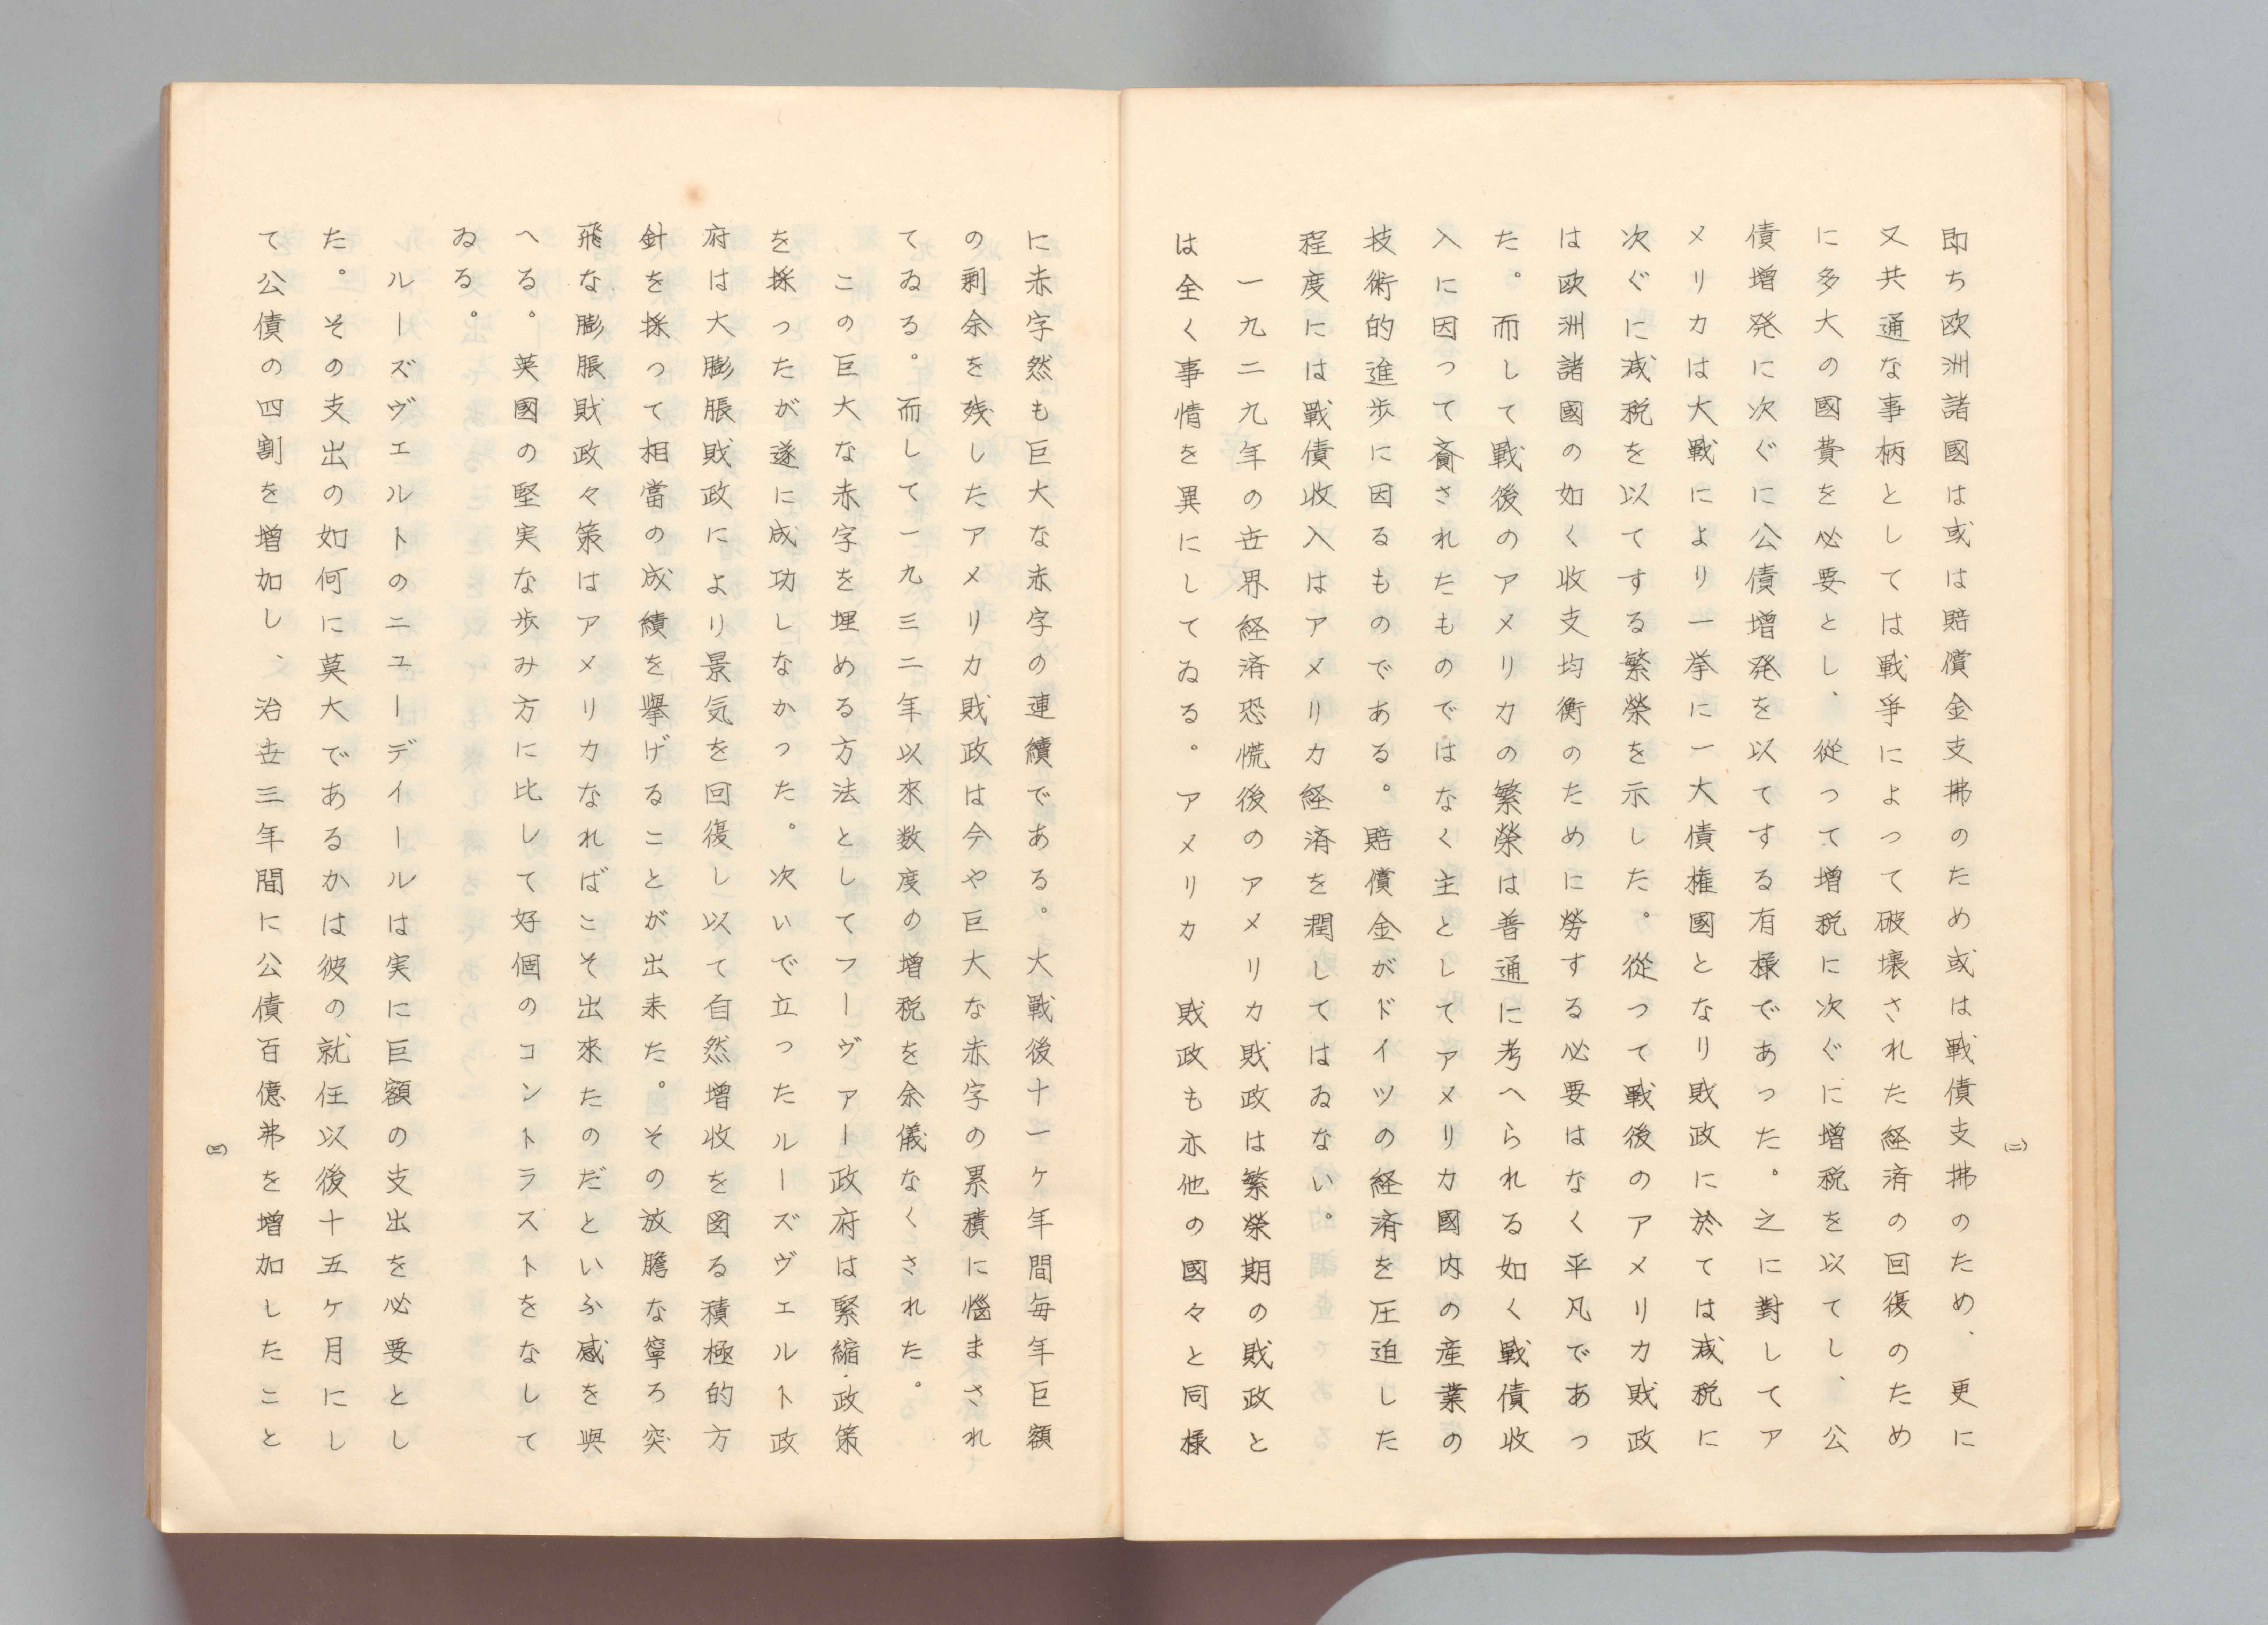 (二)
即ち欧洲諸國は或は賠償金支拂のため或は戰債支拂のため、更に
又共通な事柄としては戰爭によって破壞された経済の回復のため
に多大の國費を必要とし、從って増税に次ぐに増税を以てし、公
債増発に次ぐに公債増発を以てする有様であった。之に對してア
メリカは大戰により一挙に一大債権國となり財政に於ては減税に
次ぐに減税を以てする繁榮を示した。從って戰後のアメリカ財政
は欧洲諸國の如く收支均衡のために勞する必要はなく平凡であっ
た。而して戰後のアメリカの繁榮は普通に考へられる如く戰債收
入に因って齎されたものではなく主としてアメリカ國内の産業の
技術的進歩に因るものである。賠償金がドイツの経済を圧迫した
程度には戰債收入はアメリカ経済を潤してはゐない。
一九二九年の世界経済恐慌後のアメリカ財政は繁榮期の財政と
は全く事情を異にしてゐる。アメリカ 財政も亦他の國々と同様
に赤字然も巨大な赤字の連續である。大戰後十一ヶ年間毎年巨額
の剰余を残したアメリカ財政は今や巨大な赤字の累積に惱まされ
てゐる。而して一九三二年以來数度の増税を余儀なくされた。
この巨大な赤字を埋める方法としてフーヴァー政府は緊縮政策
を採ったが遂に成功しなかった。次いで立ったルーズヴェルト政
府は大膨脹財政により景気を回復し以て自然増收を図る積極的方
針を採って相當の成績を擧げることが出来た。その放膽な寧ろ突
飛な膨脹財政々策はアメリカなればこそ出來たのだといふ感を與
へる。英國の堅実な歩み方に比して好個のコントラストをなして
ゐる。
ルーズヴェルトのニューデイールは実に巨額の支出を必要とし
た。その支出の如何に莫大であるかは彼の就任以後十五ヶ月にし
て公債の四割を増加し、治世三年間に公債百億弗を増加したこと
(三)